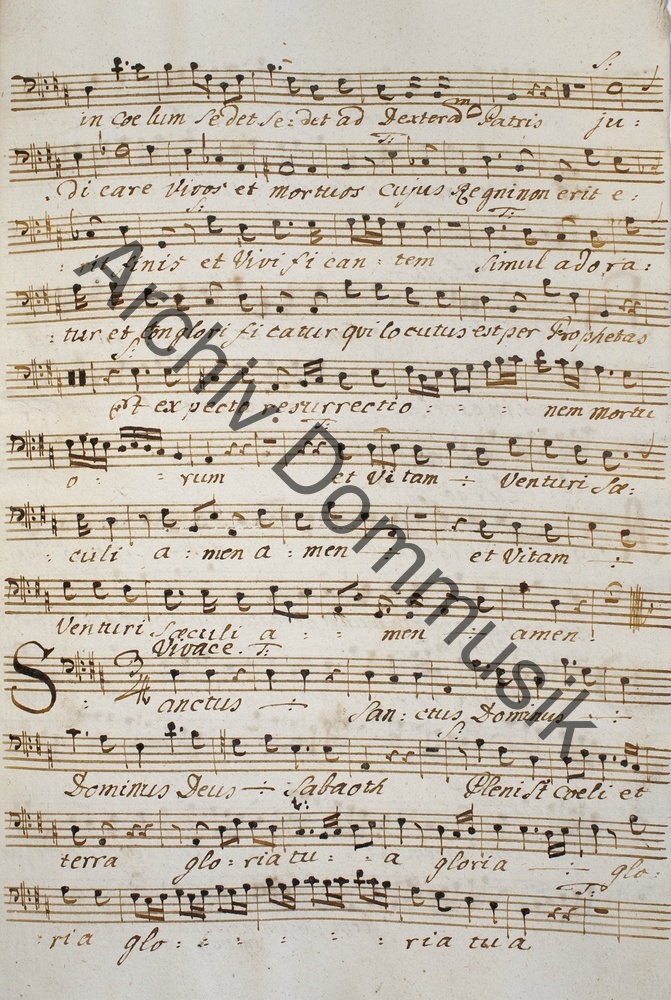 S:
in Coe lum Se det Se: det ad Dexteram Patris ju:
T:
di care Vivos et mortuos Cujus Regni non erit e:
S: T:
finis et Vivi fi can: tem Simul ad o ra:
:tur et Con glori fi catur qui lo cutus est per Prophetas
S:
Et ex pecto resurrectio : : : nem mortu
T:
o : : rum et Vi tam ÷ Venturi Sæ:
:culi a: men a: men ÷ et Vitam ÷
Venturi Sæculi a : : men ÷ amen!
Vivace. T:
3/4
Sanctus ÷ San: ctus Dominus ÷
S:
Dominus Deus ÷ Sabaoth Pleni st Coeli et
t:
terra glo: ria tu: : a gloria ÷ glo:
T:
:ria glo: : : : : : ria tu a
Archiv Dommusik